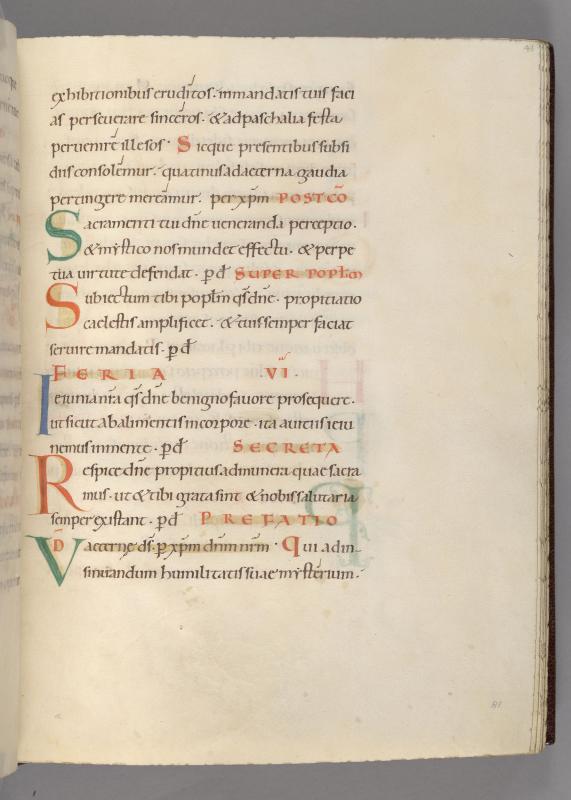 exhibitionibus eruditos. inmandatis tuis faci
as perseverare sinceros. & adpaschalia festa
pervenire illesos. Sicque presentibus subsi
diis consolemur. quatinus ad aeterna gaudia
pertingere mereamur. per xp̄m POSTCŌ
Sacramenti tui dn̄e veneranda perceptio.
& mystico nos mundet effectu. & perpe
tua virtute defendat. p d̄ SUPER POPL̄M
Subiectum tibi popl̄m q̄s dn̄e. propitiatio
caelestis amplificet. & tuis semper faciat
servire mandatis. p d̄
FERIA .VI.
Ieiunia nr̄a q̄s dn̄e benigno favore prosequere.
ut sicut ab alimentis in corpore. ita a vitiis ieiu
nemus in mente. p d̄ SECRETA
Respice dn̄e propitius ad munera quae sacra
mus. ut & tibi grata sint & nobis salutaria
semper existant. p d̄ PREFATIO
VD aeterne ds̄. p xp̄m dn̄m nr̄m. Qui ad in-
sinuandum humilitatis suae mysterium.
81